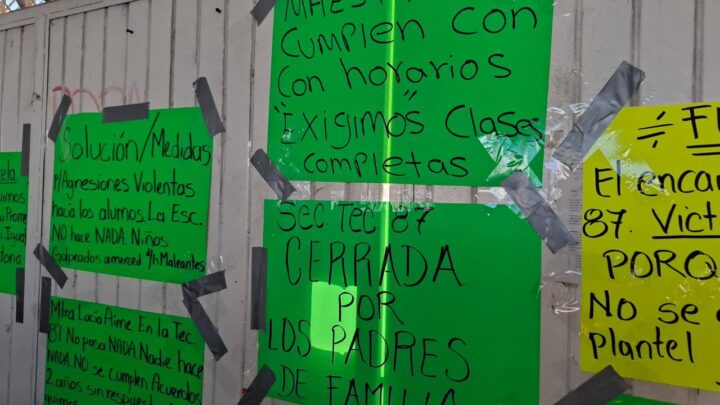 Solución/Medidas
P/Agresiones Violentas
hacía los alumos. La Esc.
NO hace NADA. Niños
Golpeados a merced d/ls Maleantes
Mtra Lucía Aime. En la Tec.
87 No pasa NADA. Nadie hace
NADA. NO se cumplen Acuerdos
2 años sin
Cumplen con
Con horarios
"Exigimos" Clases
completas
Sec Tec 87
CERRADA
POR
LOS PADRES
DE FAMILIA
El
87.
No se
Plantel